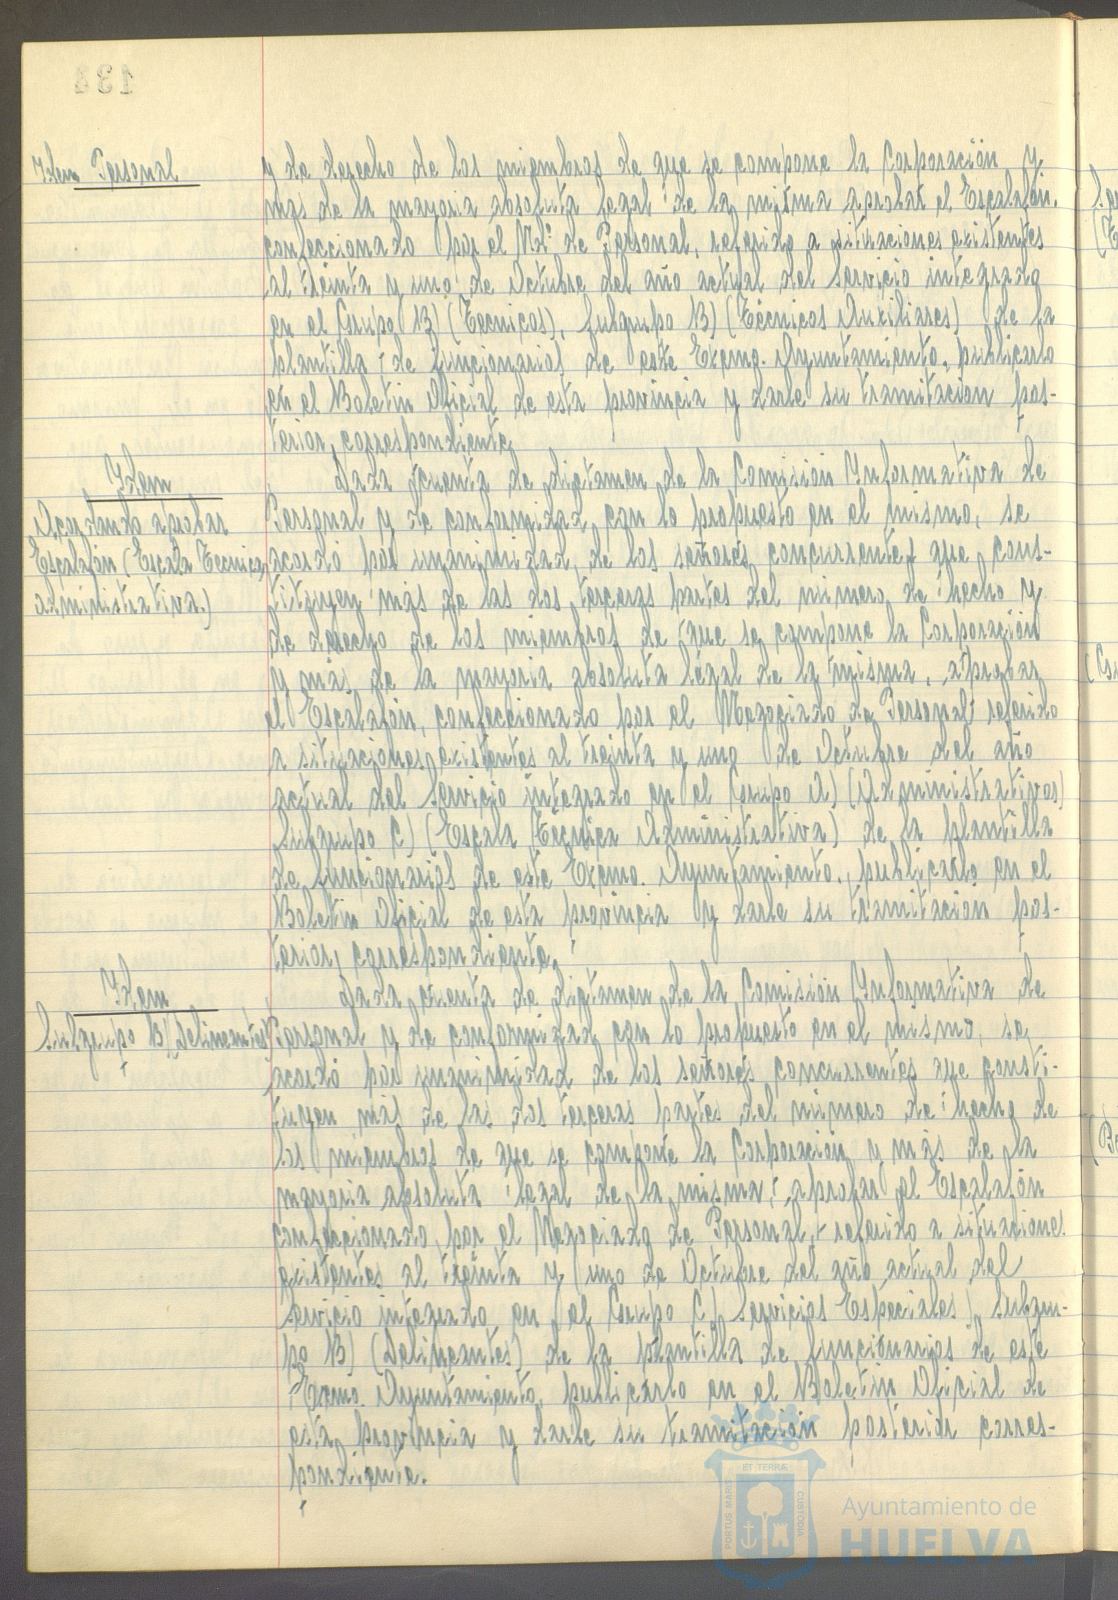 134
Idem Personal
y de derecho de los miembros de que se compone la Corporación y
más de la mayoria absoluta legal de la misma aprobar el Escalafón,
confeccionado por el Ndº de Personal, referido a situaciones existentes
al treinta y uno de Octubre del año actual del Servicio integrado
en el Grupo B) (Técnicos), Subgrupo B) (Técnicos Auxiliares) de la
plantilla de funcionarios de este Excmo. Ayuntamiento, publicarlo
en el Boletin Oficial de esta provincia y darle su tramitación pos-
terior correspondiente.
Idem
Acordando aprobar
Escalafón (Escala Tecnica
administrativa.)
Dada cuenta de dictamen de la Comisión Informativa de
Personal y de conformidad con lo propuesto en el mismo, se
acordó por unanimidad de los señores concurrentes que cons-
tituyen más de las dos terceras partes del número de hecho y
de derecho de los miembros de que se compone la Corporación
y más de la mayoria absoluta legal de la misma, aprobar
el Escalafón, confeccionado por el Negociado de Personal referido
a situaciones existentes al treinta y uno de Octubre del año
actual del Servicio integrado en el Grupo A) (Administrativos)
Subgrupo C) (Escala Técnica Administrativa) de la plantilla
de funcionarios de este Excmo. Ayuntamiento, publicarlo en el
Boletin Oficial de esta provincia y darle su tramitación pos-
terior correspondiente.
Idem
Subgrupo B) (Delineantes)
Dada cuenta de dictamen de la Comisión Informativa de
Personal y de conformidad con lo propuesto en el mismo, se
acordó por unanimidad de los señores concurrentes que consti-
tuyen más de las dos terceras partes del número de hecho de
los miembros de que se compone la Corporación y más de la
mayoria absoluta legal de la misma, aprobar el Escalafón
confeccionado por el Negociado de Personal, referido a situaciones
existentes al treinta y uno de Octubre del año actual del
Servicio integrado en el Grupo C) Servicios Especiales, Subgru-
po B) (Delineantes) de la plantilla de funcionarios de este
Excmo. Ayuntamiento, publicarlo en el Boletin Oficial de
esta provincia y darle su tramitación posterior corres-
pondiente.
ET TERRÆ
PORTUS MARIS
CUSTODIA
Ayuntamiento de
HUELVA